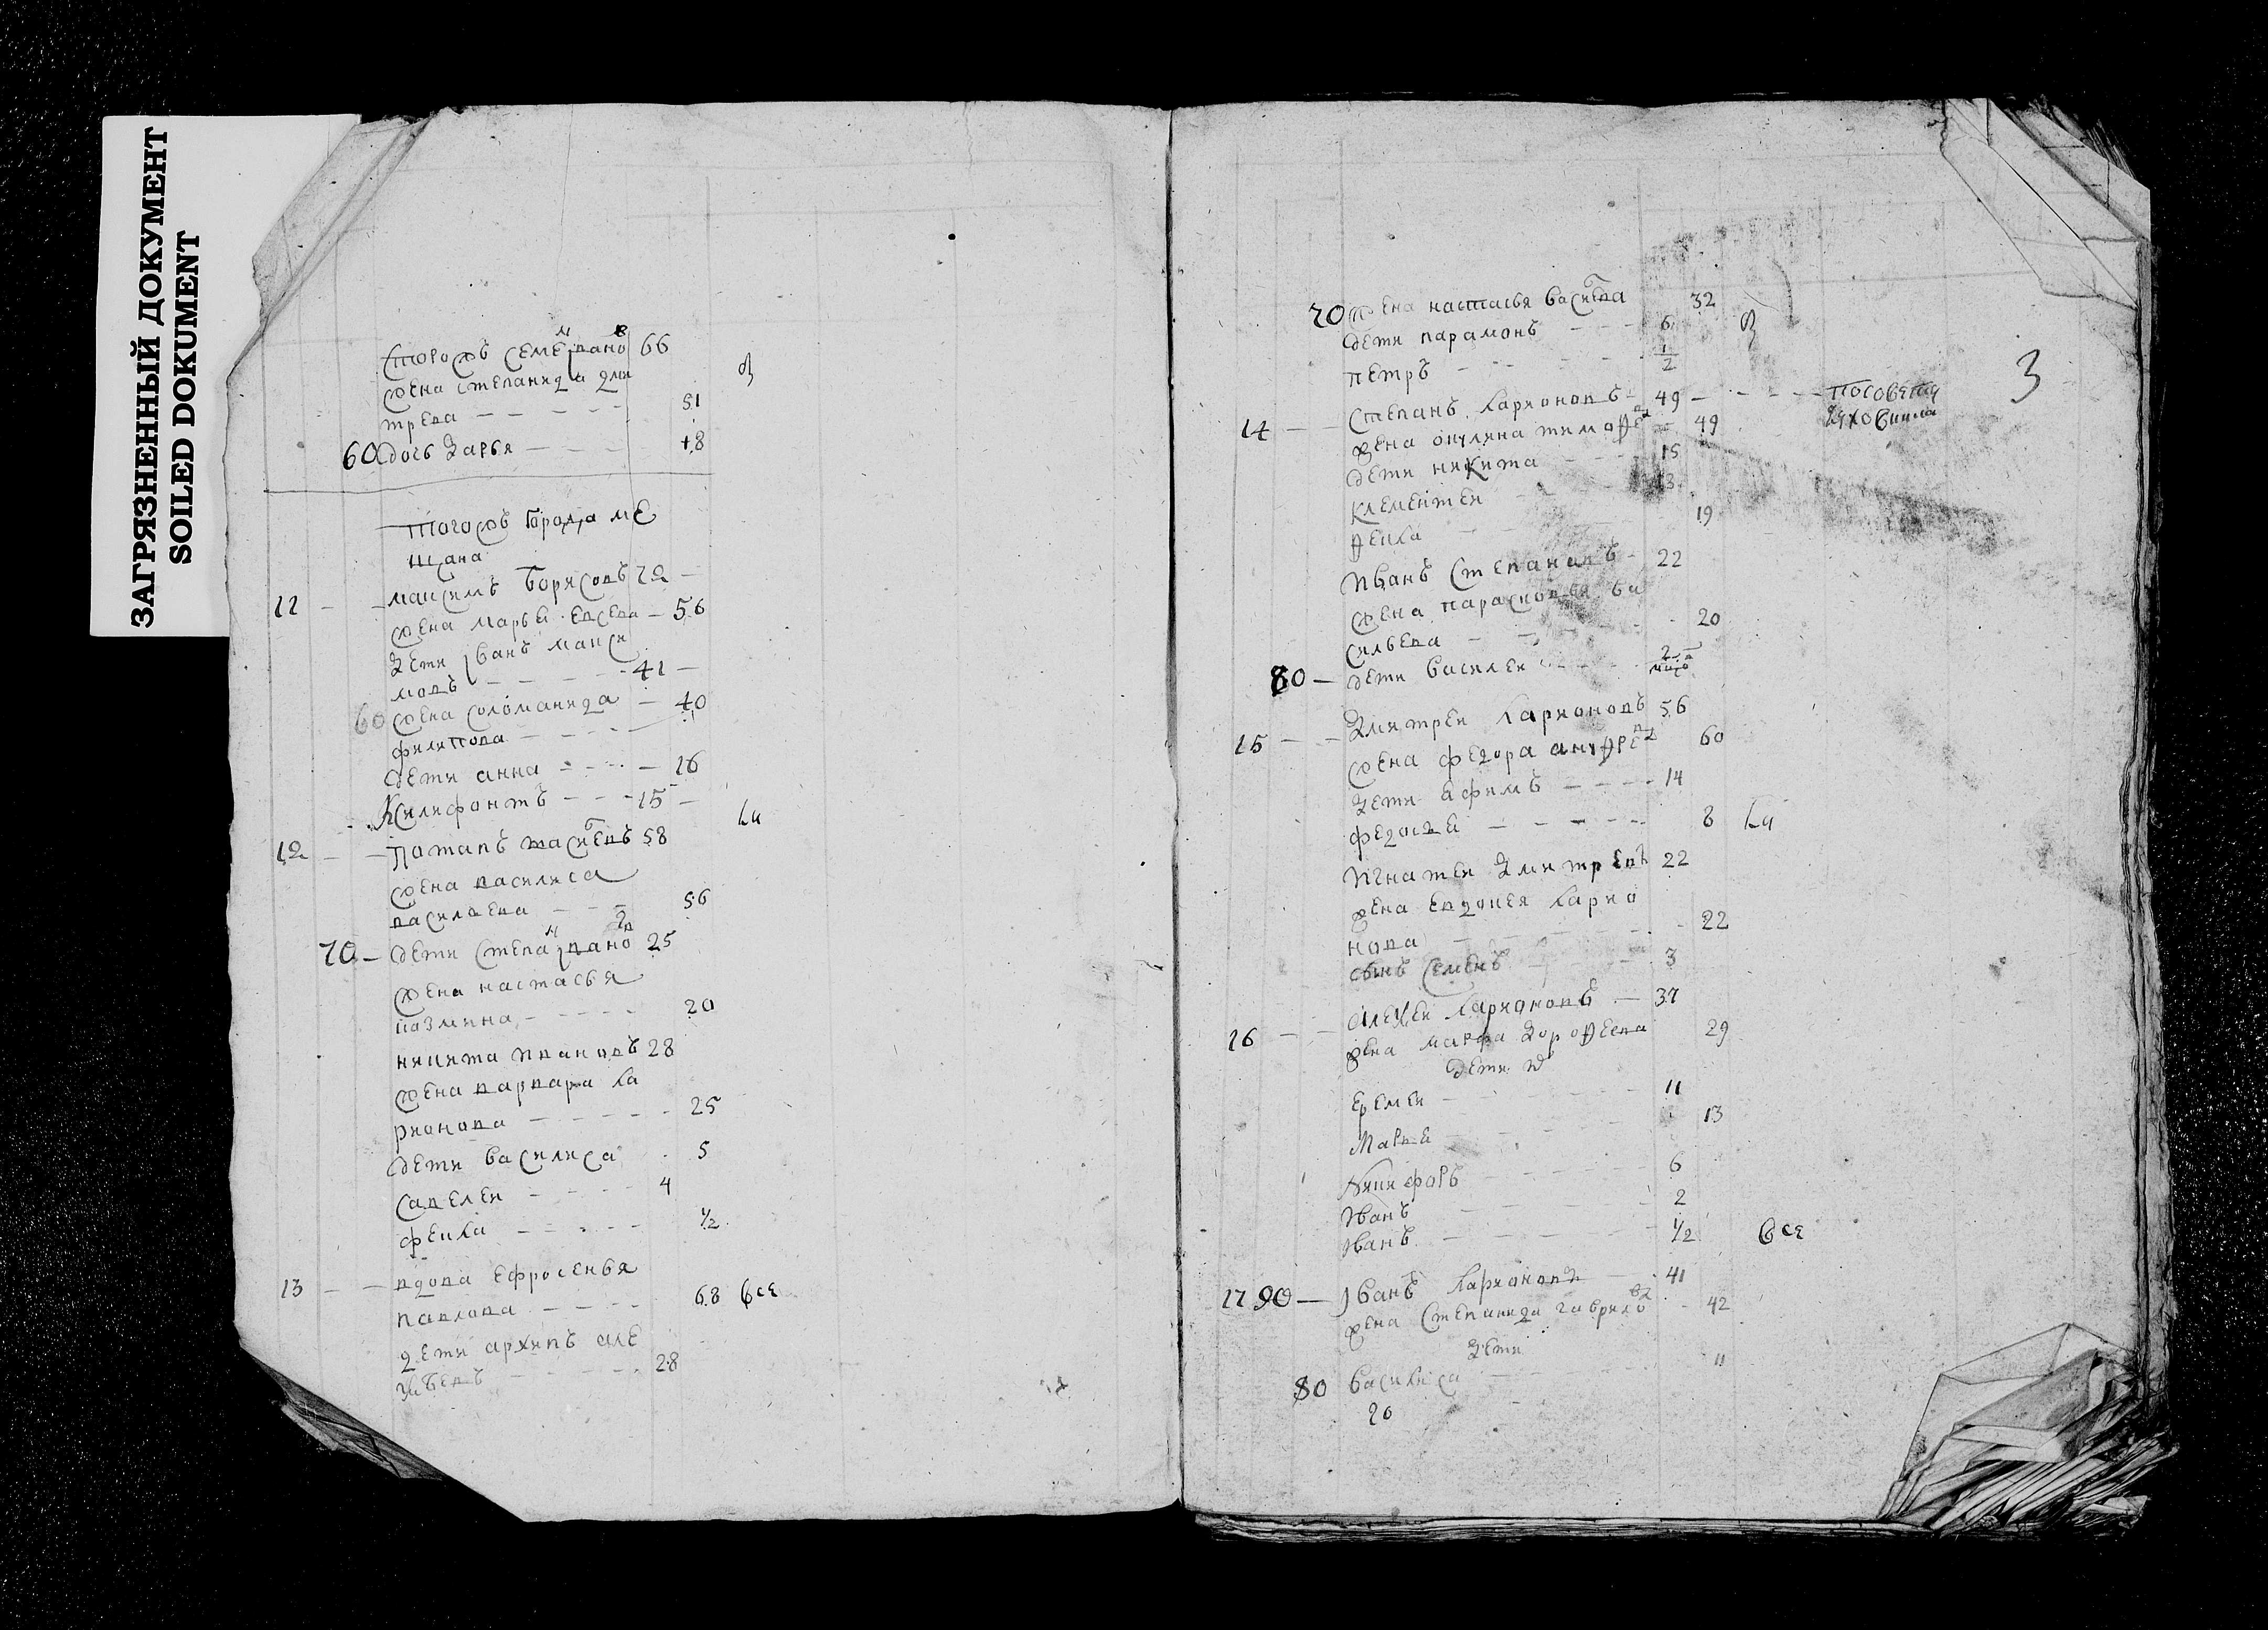 ЗАГРЯЗНЕННЫЙ ДОКУМЕНТ
SOILED DOKUMENT
сторожъ семенъ Iвановъ 66
жена степанида дми
трева — — — 51
60 дочь дарья — — 18
тогожъ города ме
щана
11 — — максимъ борисовъ 70 —
жена марья — 56
дети Iванъ макси
мовъ — — — 41 —
60 жена соломанида — 40
филипова — — —
дети анна — — — 16
Ксенофонтъ — — 15 —
12 — — потапъ 58
жена василиса
василева — — — 56
70 — дети степанъ Iвановъ 25
жена настасья
козмина — — — 20
никита ивановъ 28
жена варвара ла
рионова — — — 25
дети василиса 5
савелеи — — — 4
фекла — — — 1/2
13 — — вдова ефросенья
павлова — — — 68 все
дети архипъ але
— — — 28
3
70 жена настасья васильева 32
дети парамонъ — — — 6
петръ — — — 1/2
14 — — степанъ ларионовъ — 49 — — — —
жена окулина тимофеева — 49
дети никита — — — 15
клементеи — — 13
фекла — — 19
иванъ степановъ — 22
жена парасковья ва
сильева — — — 20
80 — дети василеи — — — 2
15 — — дмитреи ларионовъ 56
жена федора 60
дети ефимъ — — — 14
федосья — — — 8
игнатеи дмитревъ 22
жена евдокея ларио
нова — — — 22
сынъ семенъ — — 3
16 — — алексеи ларионовъ — 37
жена марфа дорофеева 29
дети
еремеи — — — 11
марья — — — 13
никифоръ — — — 6
иванъ — — — 2
иванъ — — — 1/2 все
17 90 — Iванъ ларионовъ — 41
жена степанида гаврилова — 42
дети
80 василиса — — 11
20